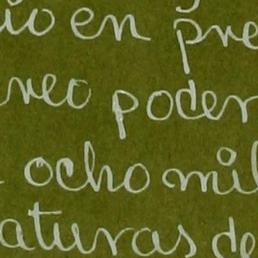 io en pre
reo poder
ocho mil
aturas de